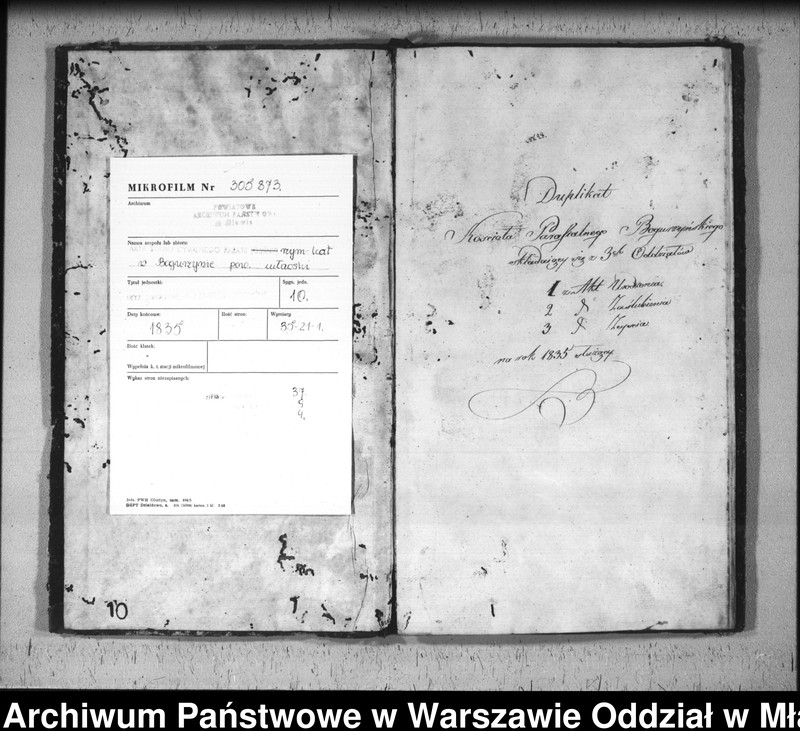 MIKROFILM Nr 308 873.
Archiwum
POWIATOWE
ARCHIWUM PAŃSTWOWE
w Mławie
Nazwa zespołu lub zbioru:
rzym-kat
w Bogurzynie pow. mławski
Tytuł jednostki:
Sygn. jedn.
10.
Daty końcowe:
1835
Ilość stron:
Wymiary
35-21-1.
Ilość klatek:
Wypełnia k. t stacji mikrofilmowej
Wykaz stron niezapisanych:
37
4.
10
Duplikat
Kościoła Parafialnego Bogurzyńskiego
składaiący się z 3ch Oddziałów
1 z Akt Urodzenia,
2 Zaślubienia
3 Zeyścia
na rok 1835 służący
1
Archiwum Państwowe w Warszawie Oddział w Mła